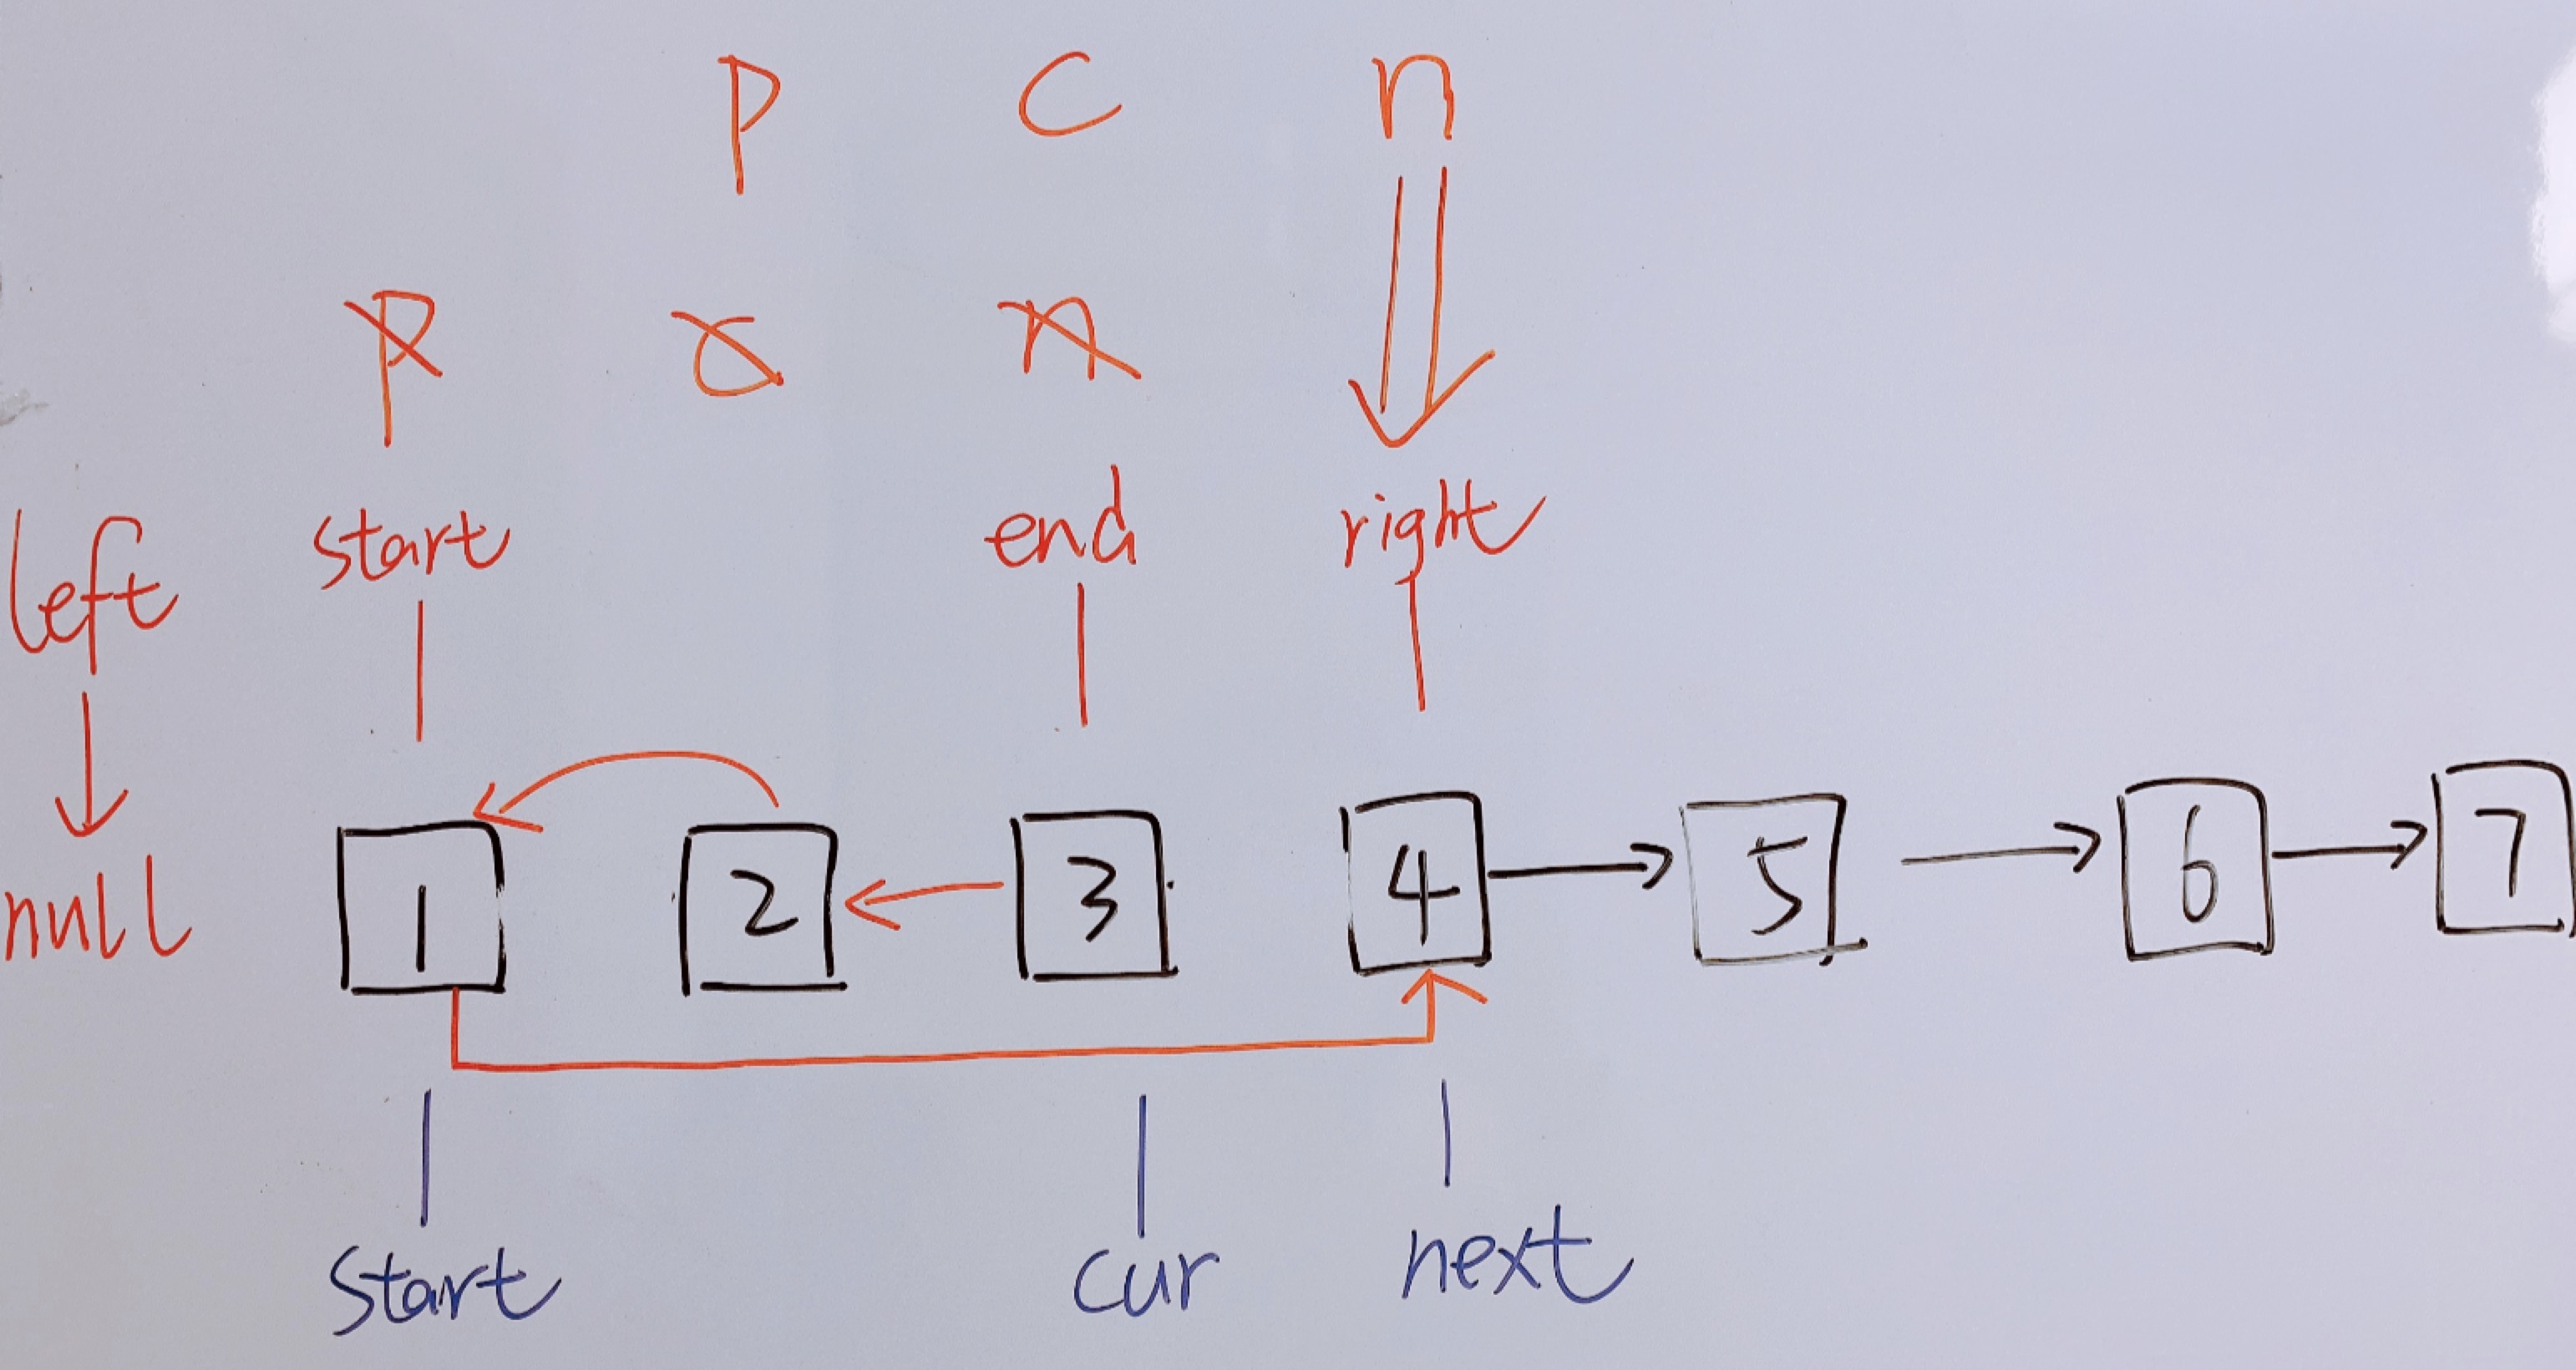 p c n
p c n
left start end right
1 2 3 4 5 6 7
null
start cur next